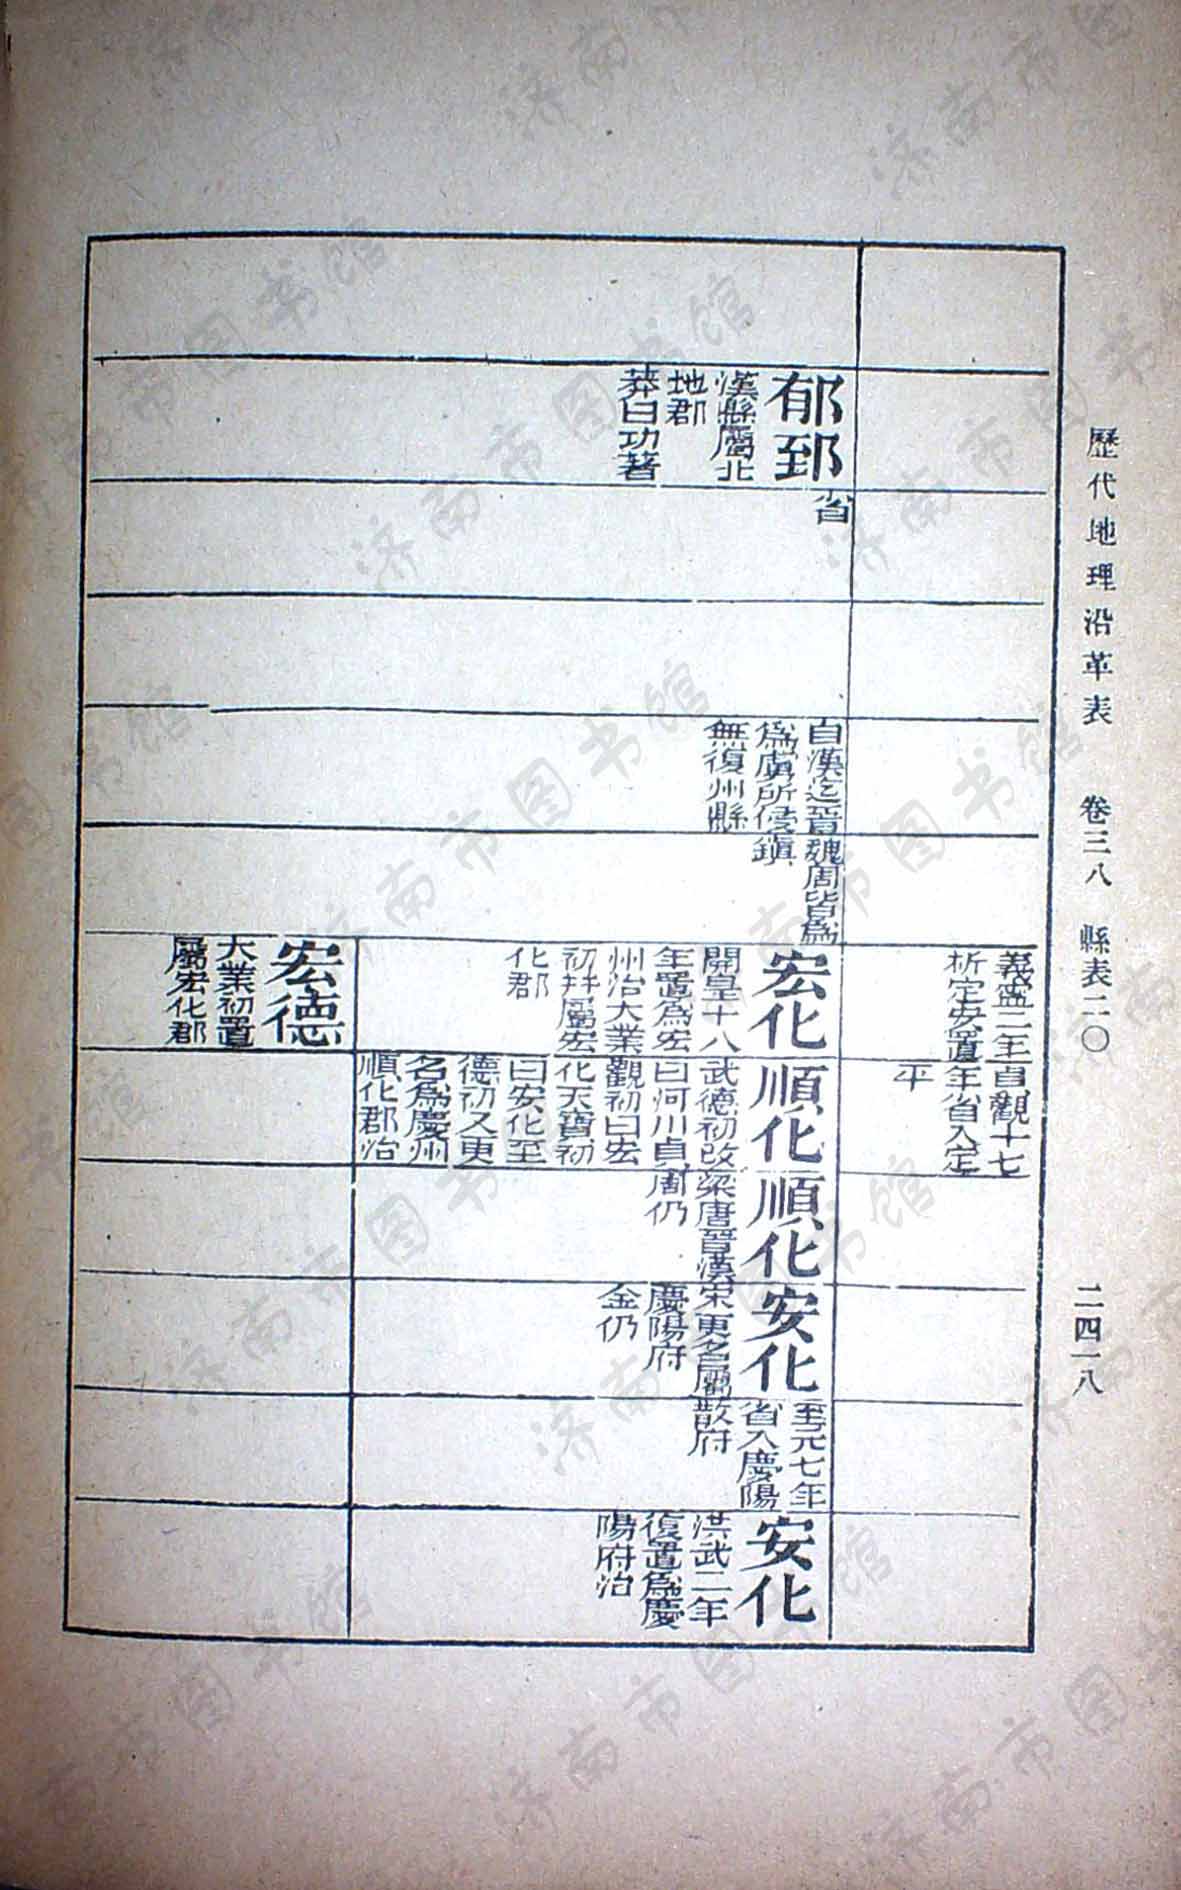 歷代地理沿革表 卷三八 縣表二〇 二四一八
義寧二年
析定安置
貞觀十七
年省入定
平
郁郅
漢縣屬北
地郡
莽曰功著
省
自漢迄晉
爲虜所侵
無復州縣
魏周皆爲
鎮
宏化
開皇十八
年置爲宏
州治大業
初幷屬宏
化郡
順化
武德初改
曰河川貞
觀初曰宏
化天寶初
曰安化至
德初又更
名爲慶州
順化郡治
順化
梁唐晉漢
周仍
安化
宋更名屬
慶陽府
金仍
至元七年
省入慶陽
散府
安化
洪武二年
復置爲慶
陽府治
宏德
大業初置
屬宏化郡
济南市图书馆